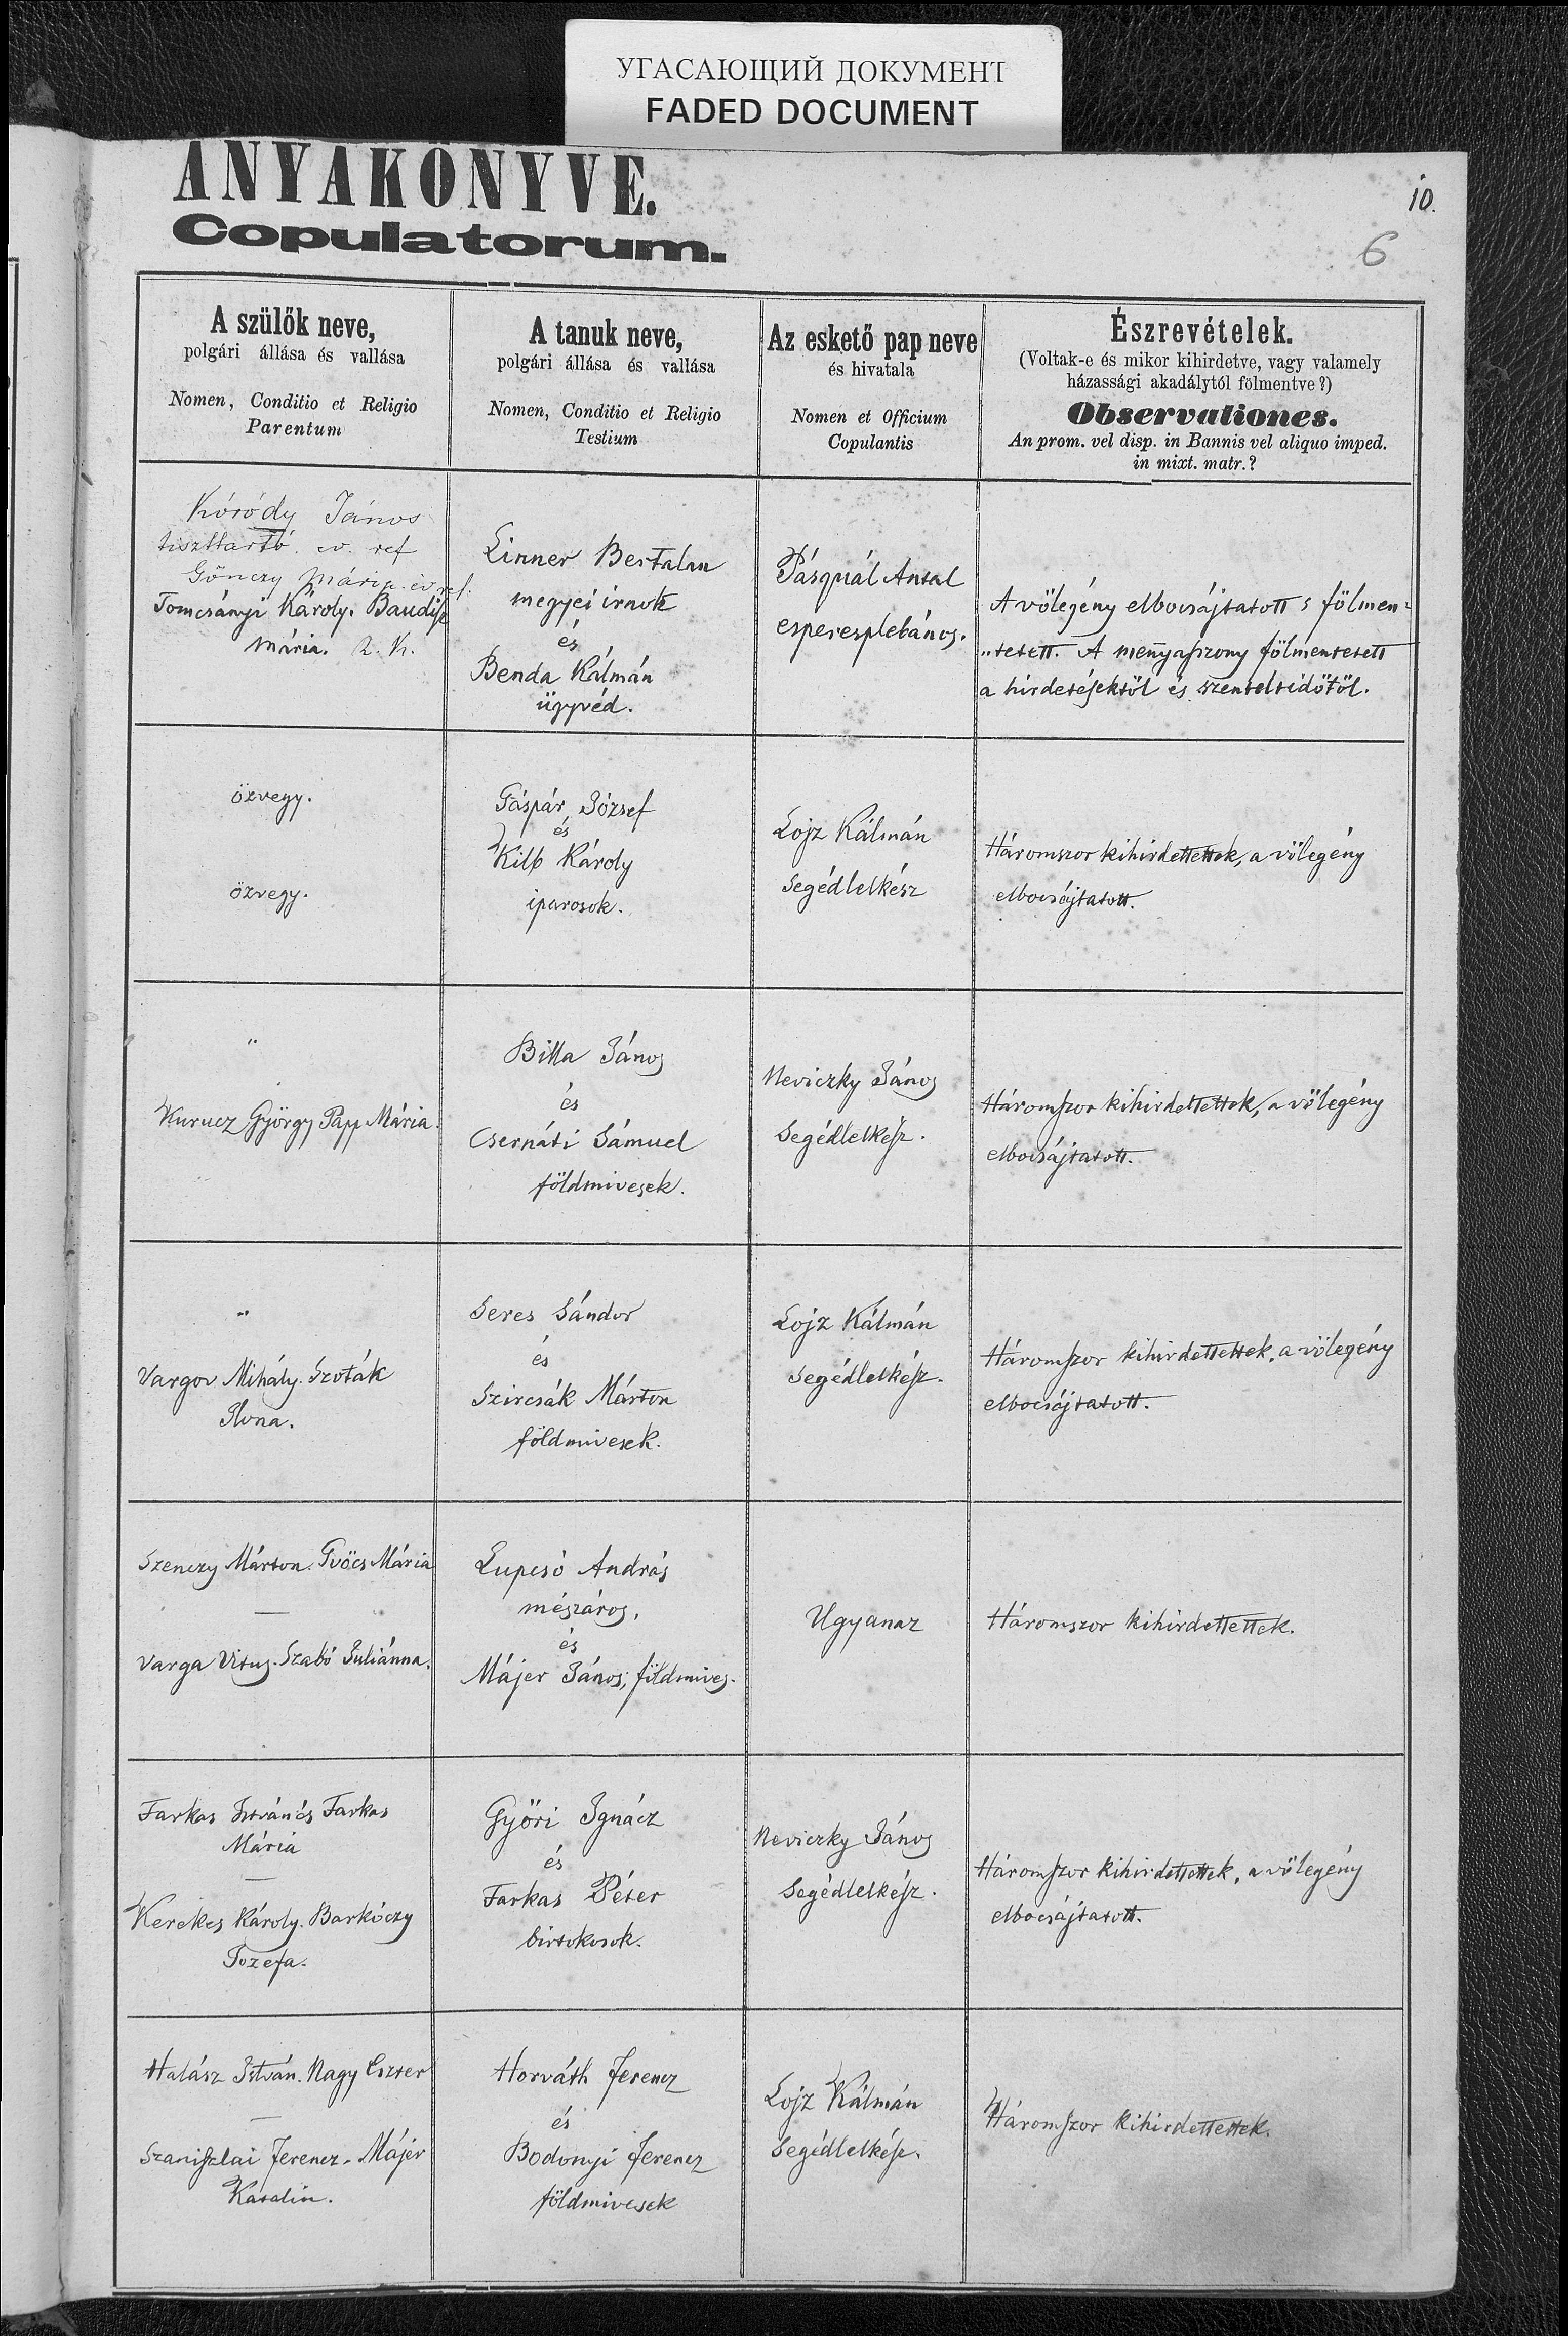 УГАСАЮЩИЙ ДОКУМЕНТ
FADED DOCUMENT
ANYAKÖNYVE.
Copulatorum.
10.
6
A szülők neve,
polgári állása és vallása
Nomen, Conditio et Religio
Parentum
A tanuk neve,
polgári állása és vallása
Nomen, Conditio et Religio
Testium
Az eskető pap neve
és hivatala
Nomen et Officium
Copulantis
Észrevételek.
(Voltak-e és mikor kihirdetve, vagy valamely
házassági akadálytól fölmentve?)
Observationes.
An prom. vel disp. in Bannis vel aliquo imped.
in mixt. matr.?
Kóródy János
tiszttartó. ev. ref
Gönczy Mária ev ref.
Tomcsányi Károly. Baudisz
Mária. R. K.
Linner Bertalan
megyei irnok
és
Benda Kálmán
ügyvéd.
Pásquál Antal
esperesplebános.
A völegény elbocsájtatott s fölmen-
"tetett. A menyaszony fölmentetett
a hirdetésektöl és szenteltidőtöl.
özvegy.
özvegy.
Gáspár József
és
Kilb Károly
iparosok.
Lojz Kálmán
Segédlelkész
Háromszor kihirdettettek, a völegény
elbocsájtatott.
"
Kurucz György Papp Mária.
Billa János
és
Csernáti Sámuel
földmivesek.
Neviczky János
Segédlelkész.
Háromszor kihirdettettek, a völegény
elbocsájtatott.
"
Vargov Mihály. Szoták
Ilona.
Seres Sándor
és
Szircsák Márton
földmivesek.
Lojz Kálmán
Segédlelkész.
Háromszor kihirdettettek, a völegény
elbocsájtatott.
Szenczy Márton. Gvöcs Mária
—
Varga Vitus. Szabó Juliánna.
Lupcsó András
mészáros,
és
Májer János, földmives.
Ugyanaz
Háromszor kihirdettettek.
Farkas István és Farkas
Mária
—
Kerekes Károly. Barkóczy
Jozefa.
Györi Ignácz
és
Farkas Péter
birtokosok.
Neviczky János
Segédlelkész.
Háromszor kihirdettettek, a völegény
elbocsájtatott.
Halász István. Nagy Eszter
—
Szaniszlai Ferencz. Májer
Katalin.
Horváth Ferencz
és
Bodonyi Ferencz
földmivesek
Lojz Kálmán
Segédlelkész.
Háromszor kihirdettettek.